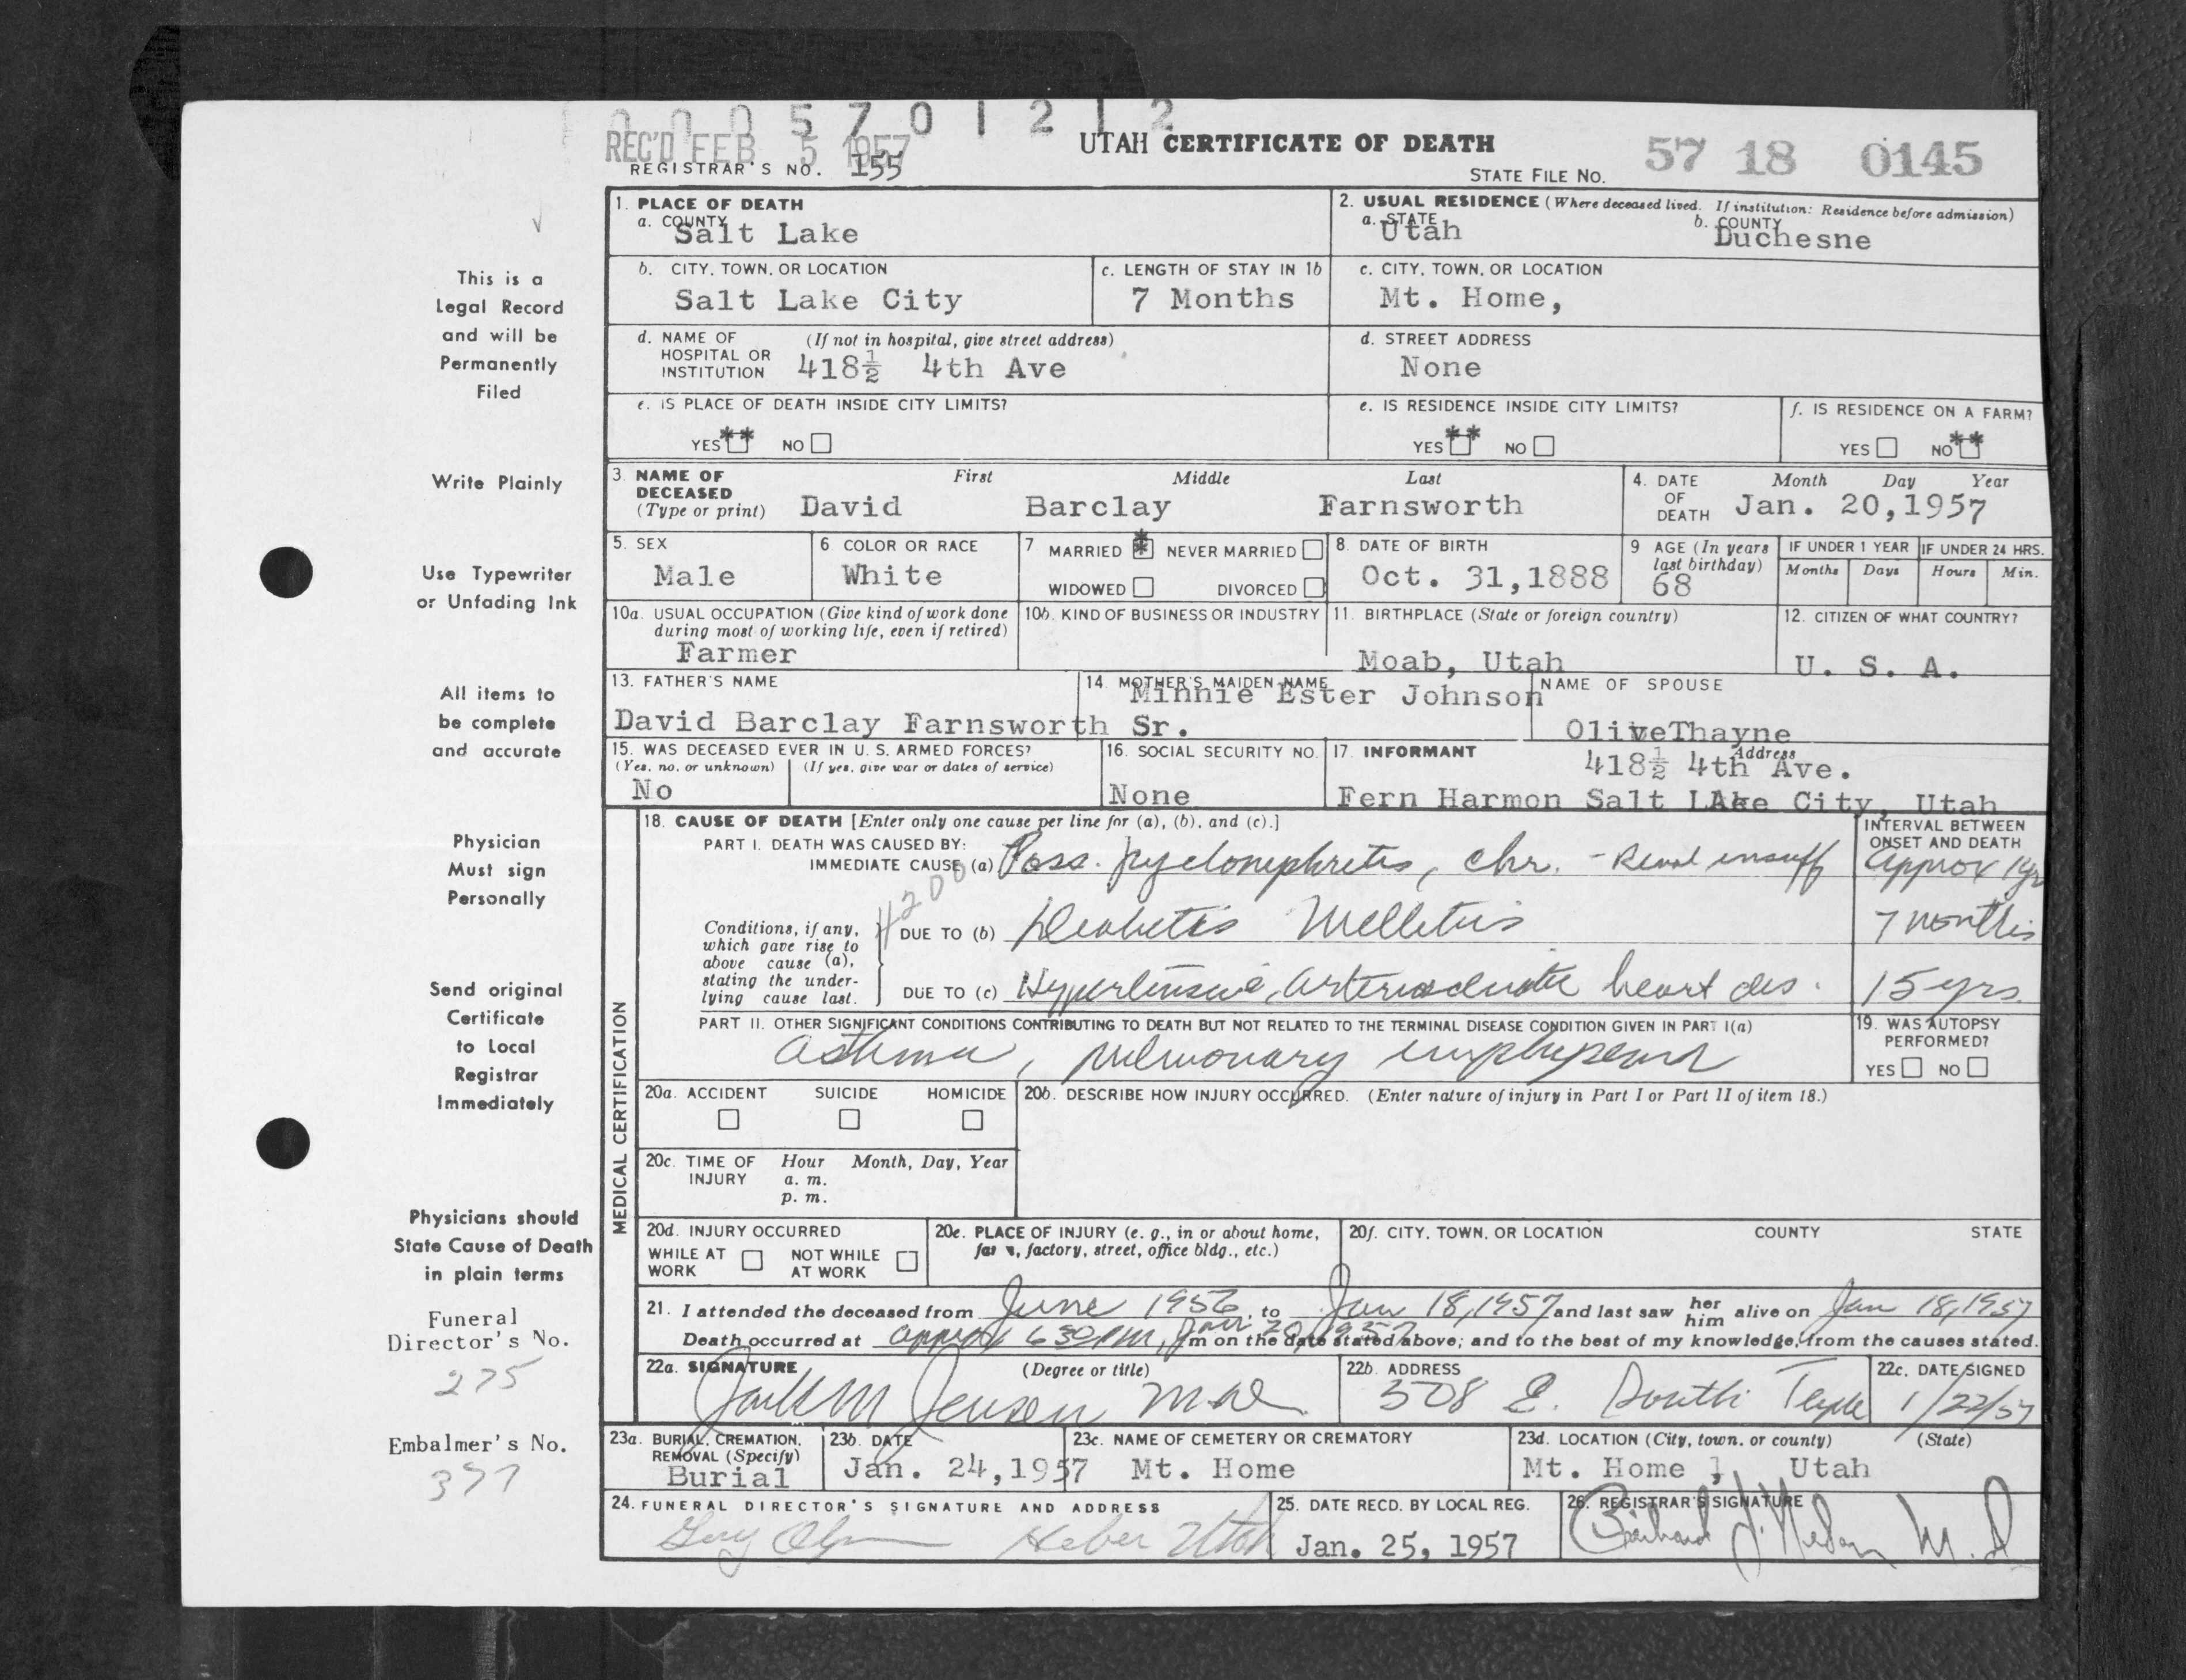 0 0 0 5 7 0 1 2 1 2
REC'D FEB 5 1957
UTAH CERTIFICATE OF DEATH
57 18 0145
REGISTRAR'S NO. 155
STATE FILE NO.
This is a
Legal Record
and will be
Permanently
Filed
Write Plainly
Use Typewriter
or Unfading Ink
All items to
be complete
and accurate
Physician
Must sign
Personally
Send original
Certificate
to Local
Registrar
Immediately
Physicians should
State Cause of Death
in plain terms
Funeral
Director's No.
275
Embalmer's No.
377
1. PLACE OF DEATH
a. COUNTY
Salt Lake
2. USUAL RESIDENCE (Where deceased lived. If institution: Residence before admission)
a. STATE
Utah
b. COUNTY
Duchesne
b. CITY, TOWN, OR LOCATION
Salt Lake City
c. LENGTH OF STAY IN 1b
7 Months
c. CITY, TOWN, OR LOCATION
Mt. Home,
d. NAME OF (If not in hospital, give street address)
HOSPITAL OR
INSTITUTION 418½ 4th Ave
d. STREET ADDRESS
None
e. IS PLACE OF DEATH INSIDE CITY LIMITS?
YES ** NO
e. IS RESIDENCE INSIDE CITY LIMITS?
YES ** NO
f. IS RESIDENCE ON A FARM?
YES NO **
3. NAME OF
DECEASED
(Type or print)
First Middle Last
David Barclay Farnsworth
4. DATE
OF
DEATH
Month Day Year
Jan. 20,1957
5. SEX
Male
6 COLOR OR RACE
White
7 MARRIED * NEVER MARRIED
WIDOWED DIVORCED
8. DATE OF BIRTH
Oct. 31,1888
9 AGE (In years
last birthday)
68
IF UNDER 1 YEAR
Months Days
IF UNDER 24 HRS.
Hours Min.
10a. USUAL OCCUPATION (Give kind of work done
during most of working life, even if retired)
Farmer
10b. KIND OF BUSINESS OR INDUSTRY
11. BIRTHPLACE (State or foreign country)
Moab, Utah
12. CITIZEN OF WHAT COUNTRY?
U. S. A.
13. FATHER'S NAME
David Barclay Farnsworth Sr.
14. MOTHER'S MAIDEN NAME
Minnie Ester Johnson
NAME OF SPOUSE
OliveThayne
15. WAS DECEASED EVER IN U. S. ARMED FORCES?
(Yes, no, or unknown) (If yes, give war or dates of service)
No
16. SOCIAL SECURITY NO.
None
17. INFORMANT
Address
418½ 4th Ave.
Fern Harmon Salt LAke City, Utah
MEDICAL CERTIFICATION
18. CAUSE OF DEATH [Enter only one cause per line for (a), (b), and (c).]
INTERVAL BETWEEN
ONSET AND DEATH
PART I. DEATH WAS CAUSED BY:
IMMEDIATE CAUSE (a) Poss. pyelonephritis, chr. - Renal insuff approx 1yr
4200
Conditions, if any,
which gave rise to
above cause (a),
stating the under-
lying cause last.
DUE TO (b) Diabetis Mellitus 7 months
DUE TO (c) Hypertensive, arteriosclerotic heart dis. 15 yrs.
PART II. OTHER SIGNIFICANT CONDITIONS CONTRIBUTING TO DEATH BUT NOT RELATED TO THE TERMINAL DISEASE CONDITION GIVEN IN PART I(a)
asthma, pulmonary emphysema
19. WAS AUTOPSY
PERFORMED?
YES NO
20a. ACCIDENT SUICIDE HOMICIDE
20b. DESCRIBE HOW INJURY OCCURRED. (Enter nature of injury in Part I or Part II of item 18.)
20c. TIME OF Hour Month, Day, Year
INJURY a. m.
p. m.
20d. INJURY OCCURRED
WHILE AT WORK NOT WHILE AT WORK
20e. PLACE OF INJURY (e. g., in or about home,
farm, factory, street, office bldg., etc.)
20f. CITY, TOWN, OR LOCATION COUNTY STATE
21. I attended the deceased from June 1956, to Jan 18, 1957 and last saw her him alive on Jan 18, 1957
Death occurred at approx 6 30 PM, Jan 20, 1957 m on the date stated above; and to the best of my knowledge, from the causes stated.
22a. SIGNATURE (Degree or title)
Jack M Jensen MD
22b. ADDRESS
508 E. South Temple
22c. DATE SIGNED
1/22/57
23a. BURIAL, CREMATION,
REMOVAL (Specify)
Burial
23b. DATE
Jan. 24,1957
23c. NAME OF CEMETERY OR CREMATORY
Mt. Home
23d. LOCATION (City, town, or county) (State)
Mt. Home , Utah
24. FUNERAL DIRECTOR'S SIGNATURE AND ADDRESS
Guy Heber Utah
25. DATE RECD. BY LOCAL REG.
Jan. 25, 1957
26. REGISTRAR'S SIGNATURE
M. D